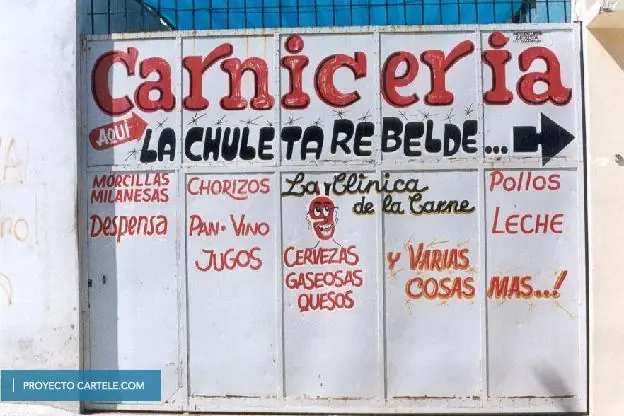 Carniceria
AQUI
LA CHULETA REBELDE...
MORCILLAS
MILANESAS
Despensa
CHORIZOS
PAN - VINO
JUGOS
La Clinica
de la Carne
CERVEZAS
GASEOSAS
QUESOS
Y VARIAS
COSAS
Pollos
LECHE
MAS...!
PROYECTO CARTELE.COM